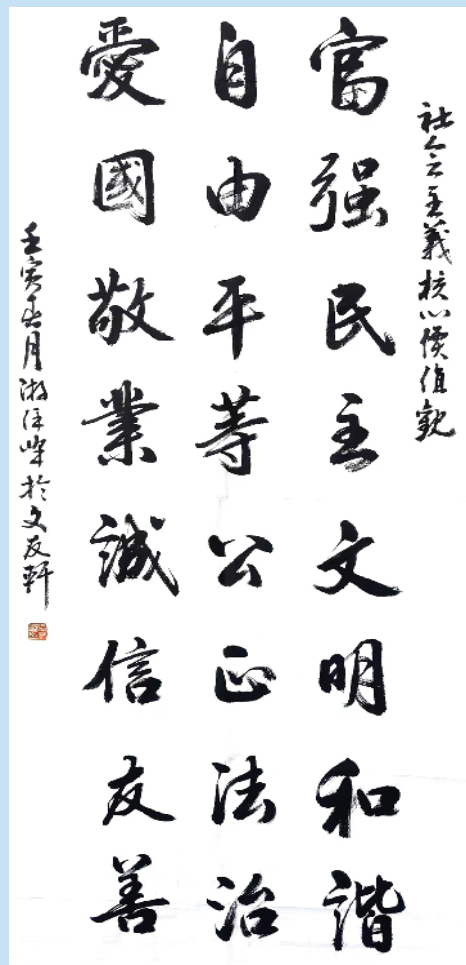 社会主義核心價值觀
富强民主文明和諧
自由平等公正法治
愛國敬業誠信友善
壬寅春月游峰於文友軒